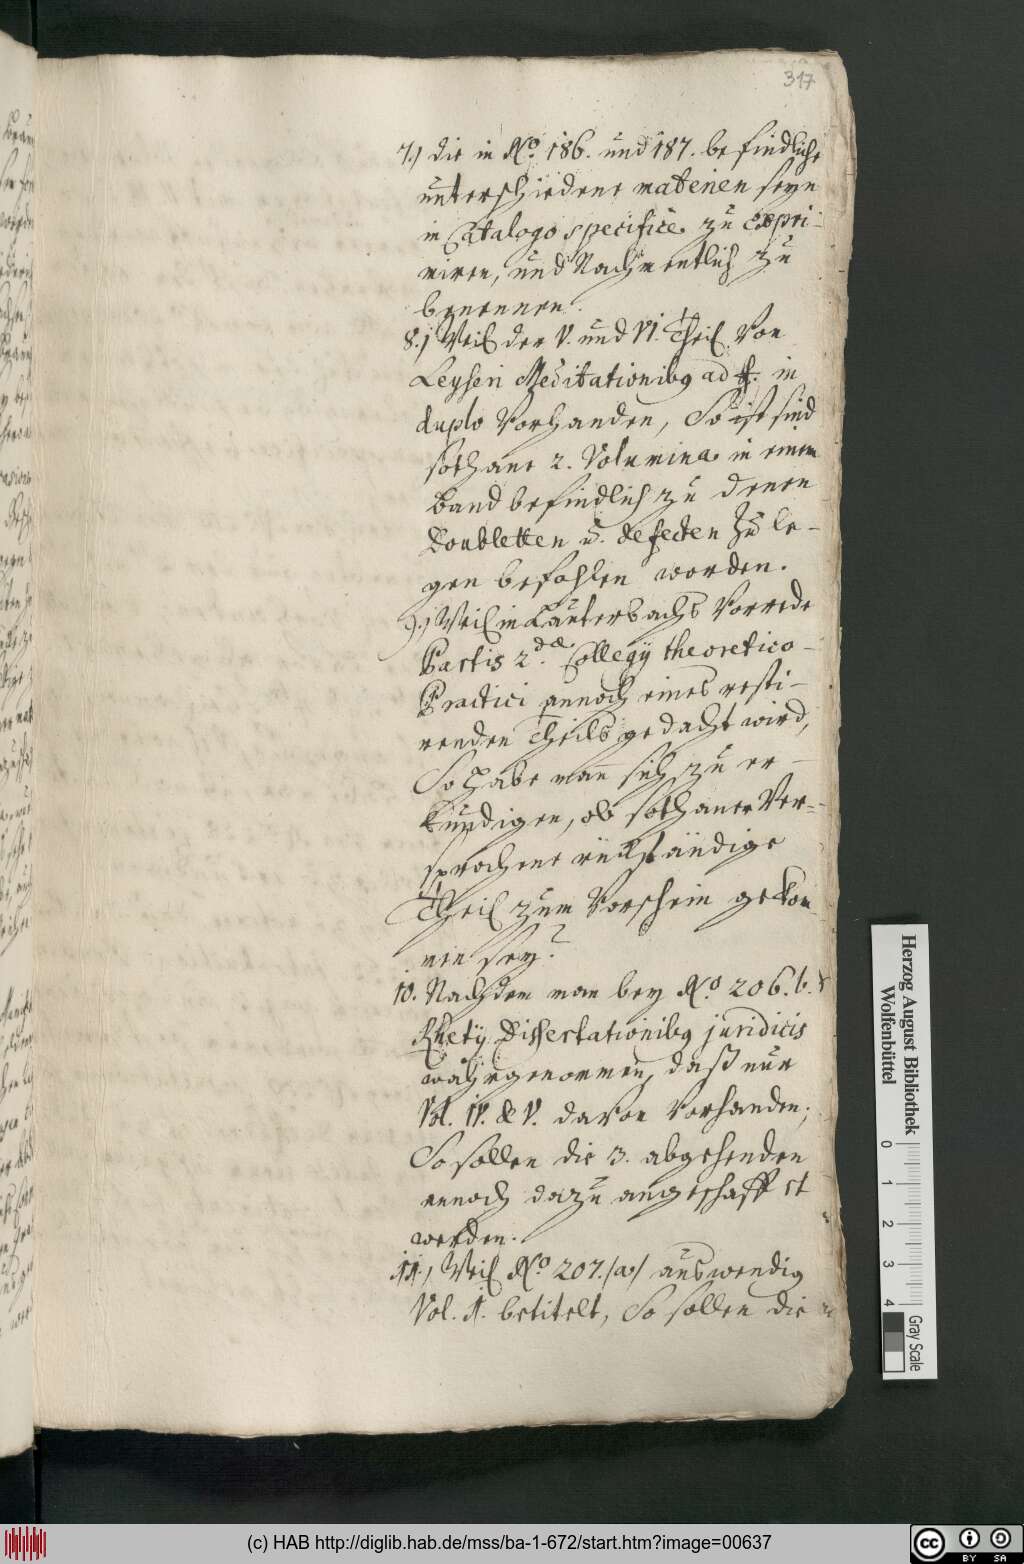 317
7.) die in No. 186. und 187. befindliche
unterschiedene materien seyn
in Catalogo specificè zu expri-
miren, und Nahmentlich zu
benennen.
8.) Weil der V. und VI. Theil von
Leyseri Meditationibq ad ff. in
duplo vorhanden, So ist sind
sothane 2. Volumina in einem
Band befindlich zu denen
Doubletten u. defecten zu le-
gen befohlen worden.
9.) Weil in Lauterbachs Vorrede
Partis 2.dae Collegij theoretico-
Practici annoch eines resti-
renden Theils gedacht wird,
So habe man sich zu er-
kundigen, ob sothaner Ver-
sprochene rückständige
Theil zum Vorschein gekom
men sey?
10. Nachdem man bey No. 206. b.
Rhetij Dissertationibq juridicis
wahrgenommen, daß nur
Vol. IV. & V. davon vorhanden;
So sollen die 3. abgehenden
annoch dazu angeschafft
werden.
11.) Weil No. 207. (a) auswendig
Vol. 1. betitelt, So sollen die
Herzog August Bibliothek
Wolfenbüttel
0 1 2 3 4
Gray Scale
(c) HAB http://diglib.hab.de/mss/ba-1-672/start.htm?image=00637
cc BY SA